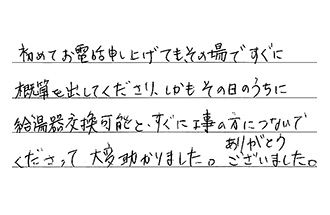 初めてお電話申し上げてもその場ですぐに
概算を出してくださり、しかもその日のうちに
給湯器交換可能と、すぐに工事の方につないで
くださって 大変助かりました。ありがとうございました。